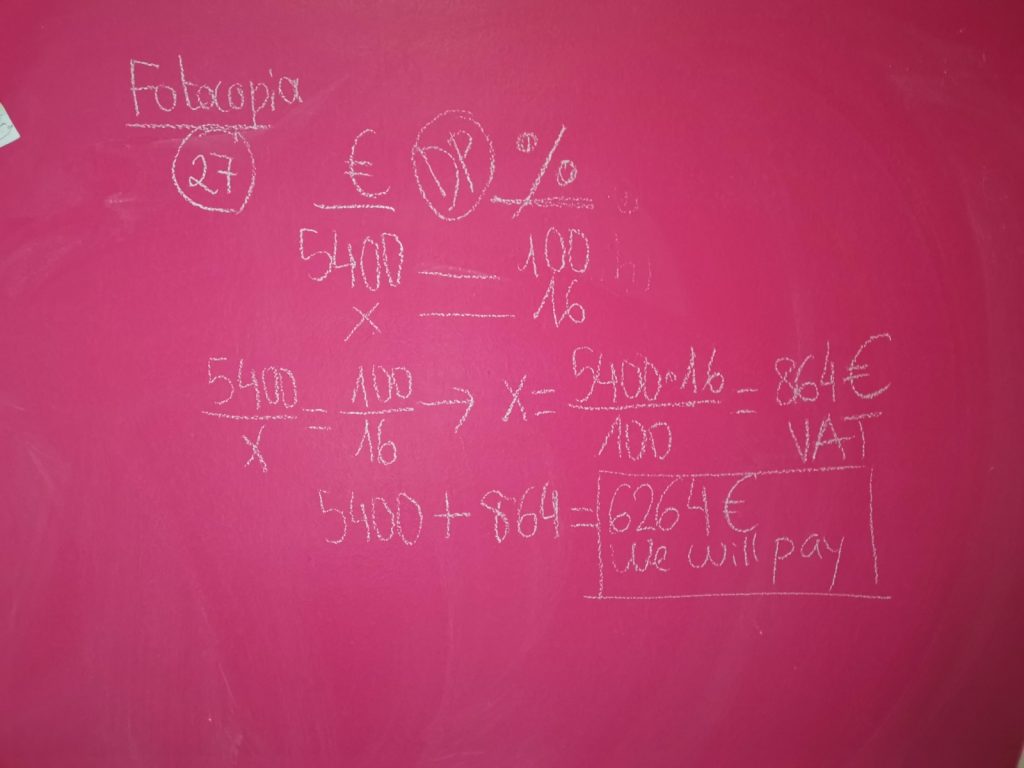 Fotocopia
27
€ DP %
5400 — 100
x — 16
5400/x = 100/16 → x = 5400·16/100 = 864€ VAT
5400 + 864 = 6264€
We will pay